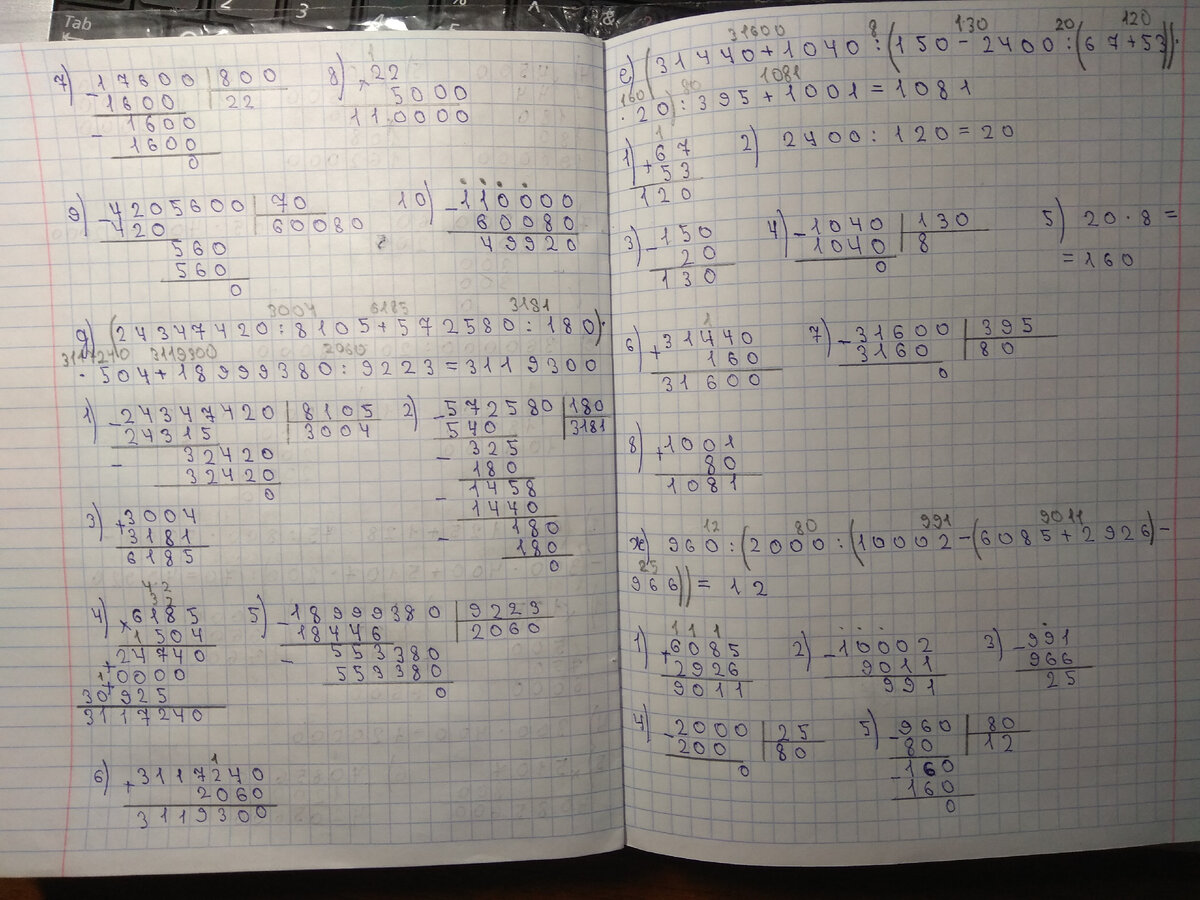 Tab
7) -17600 | 800
1600 | 22
- 1600
1600
0
8) 1
× 22
5000
110000
9) -4205600 | 70
420 | 60080
560
560
0
10) -110000
60080
49920
3004 6185 3181
д) (24347420:8105+572580:180)·
3117240 3119300 2060
·504+18999380:9223=3119300
1) -24347420 | 8105
24315 | 3004
- 32420
32420
0
2) -572580 | 180
540 | 3181
- 325
180
- 1458
1440
- 180
180
0
3) +3004
3181
6185
4) 4 2
3 2
×6185
504
+24740
+0000
30925
3117240
5) -18999380 | 9223
18446 | 2060
- 553380
553380
0
6) 1
+3117240
2060
3119300
31600 8 130 20 120
е) (31440+1040:(150-2400:(67+53))·
160 80 1081
·20):395+1001=1081
1) 1
+67
53
120
2) 2400:120=20
3) -150
20
130
4) -1040 | 130
1040 | 8
0
5) 20·8=
=160
6) 1
+31440
160
31600
7) -31600 | 395
3160 | 80
0
8) +1001
80
1081
12 80 991 9011
ж) 960:(2000:(10002-(6085+2926)-
25
966))=12
1) 1 1 1
+6085
2926
9011
2) -10002
9011
991
3) -991
966
25
4) -2000 | 25
200 | 80
0
5) -960 | 80
80 | 12
-160
160
0